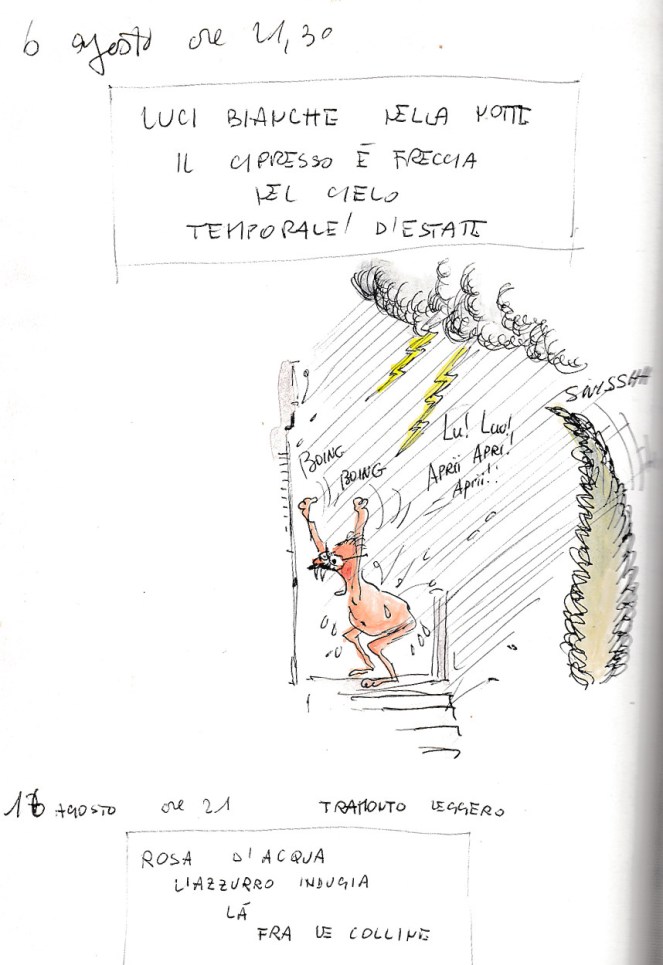 6 agosto ore 21,30
LUCI BIANCHE NELLA NOTTE
IL CIPRESSO È FRECCIA
NEL CIELO
TEMPORALE! D'ESTATE
SWISSHH
Lu! Luu!
APRII APRI!
APRII!!
BOING
BOING
16 AGOSTO ore 21 TRAMONTO LEGGERO
ROSA D'ACQUA
L'AZZURRO INDUGIA
LÁ
FRA LE COLLINE